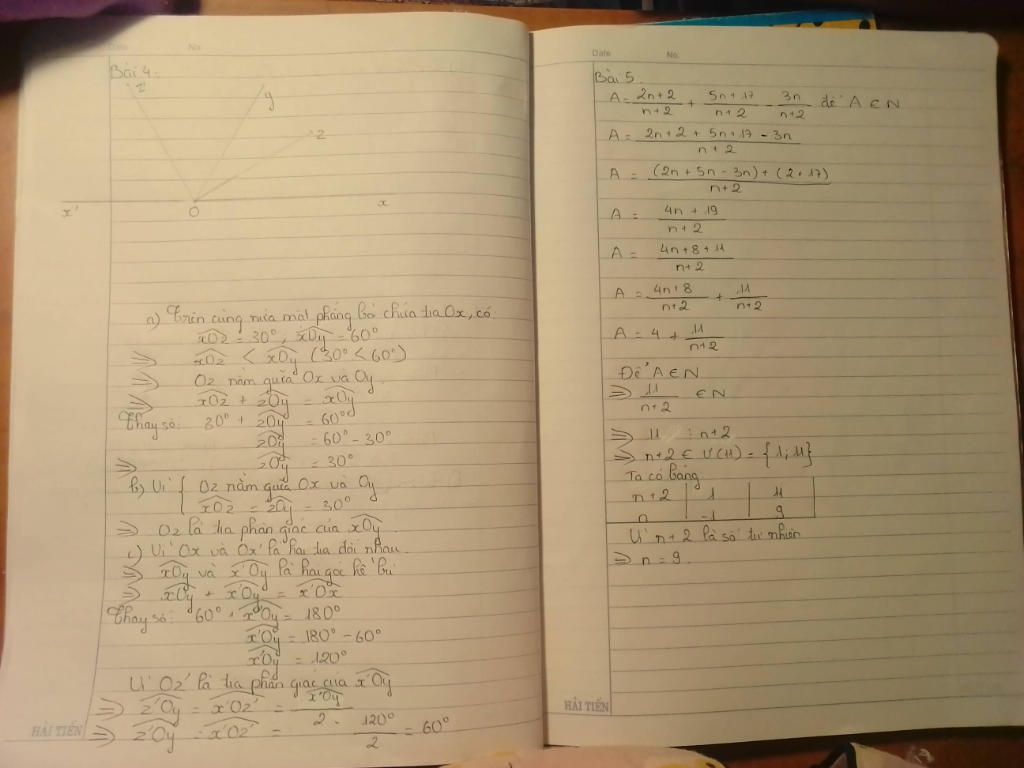 Date No.
Bài 4:
z'
y
z
x'
O
x
a) Trên cùng nửa mặt phẳng bờ chứa tia Ox, có
xOz = 30°, xOy = 60°
=> xOz < xOy (30° < 60°)
=> Oz nằm giữa Ox và Oy.
=> xOz + zOy = xOy
Thay số: 30° + zOy = 60°
zOy = 60° - 30°
=> zOy = 30°
b) Vì { Oz nằm giữa Ox và Oy
xOz = zOy = 30°
=> Oz là tia phân giác của xOy.
c) Vì Ox và Ox' là hai tia đối nhau.
=> xOy và x'Oy là hai góc kề bù
=> xOy + x'Oy = x'Ox
Thay số: 60° + x'Oy = 180°
x'Oy = 180° - 60°
x'Oy = 120°
Vì Oz' là tia phân giác của x'Oy
=> z'Oy = x'Oz' = x'Oy / 2
=> z'Oy = x'Oz' = 120° / 2 = 60°
HẢI TIẾN
Date No.
Bài 5.
A = 2n+2 / n+2 + 5n+17 / n+2 - 3n / n+2 để A ∈ N
A = 2n+2 + 5n+17 - 3n / n+2
A = (2n + 5n - 3n) + (2+17) / n+2
A = 4n + 19 / n+2
A = 4n+8+11 / n+2
A = 4n+8 / n+2 + 11 / n+2
A = 4 + 11 / n+2
Để A ∈ N
=> 11 / n+2 ∈ N
=> 11 ⋮ n+2
=> n+2 ∈ Ư(11) = {1; 11}
Ta có bảng
n+2 | 1 | 11
n | -1 | 9
Vì n+2 là số tự nhiên
=> n = 9.
HẢI TIẾN